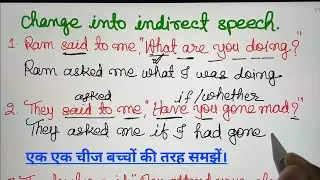 change into indirect speech.
1. Ram said to me, "What are you doing?"
Ram asked me what I was doing.
asked if/whether
2. They said to me, "Have you gone mad?"
They asked me if I had gone
एक एक चीज बच्चों की तरह समझें।